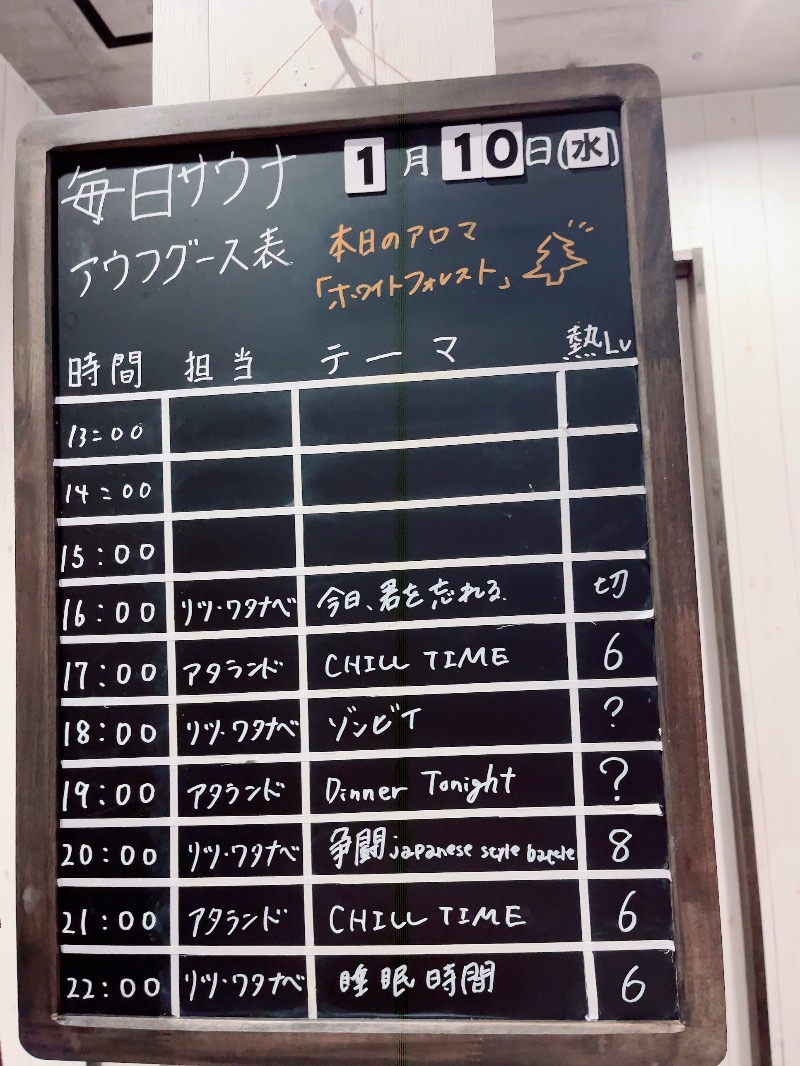 毎日サウナ 1月10日(水)
アウフグース表 本日のアロマ
「ホワイトフォレスト」
時間 担当 テーマ 熱Lv
13:00
14:00
15:00
16:00 リツ・ワタナベ 今日、君を忘れる 切
17:00 アタランド CHILL TIME 6
18:00 リツ・ワタナベ ゾンビィ ?
19:00 アタランド Dinner Tonight ?
20:00 リツ・ワタナベ 争闘 japanese style battle 8
21:00 アタランド CHILL TIME 6
22:00 リツ・ワタナベ 睡眠時間 6